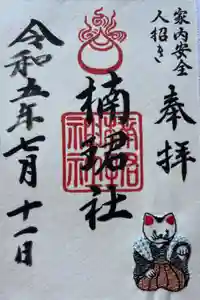 家内安全
人招き
奉拝
楠珺社
令和五年七月十一日